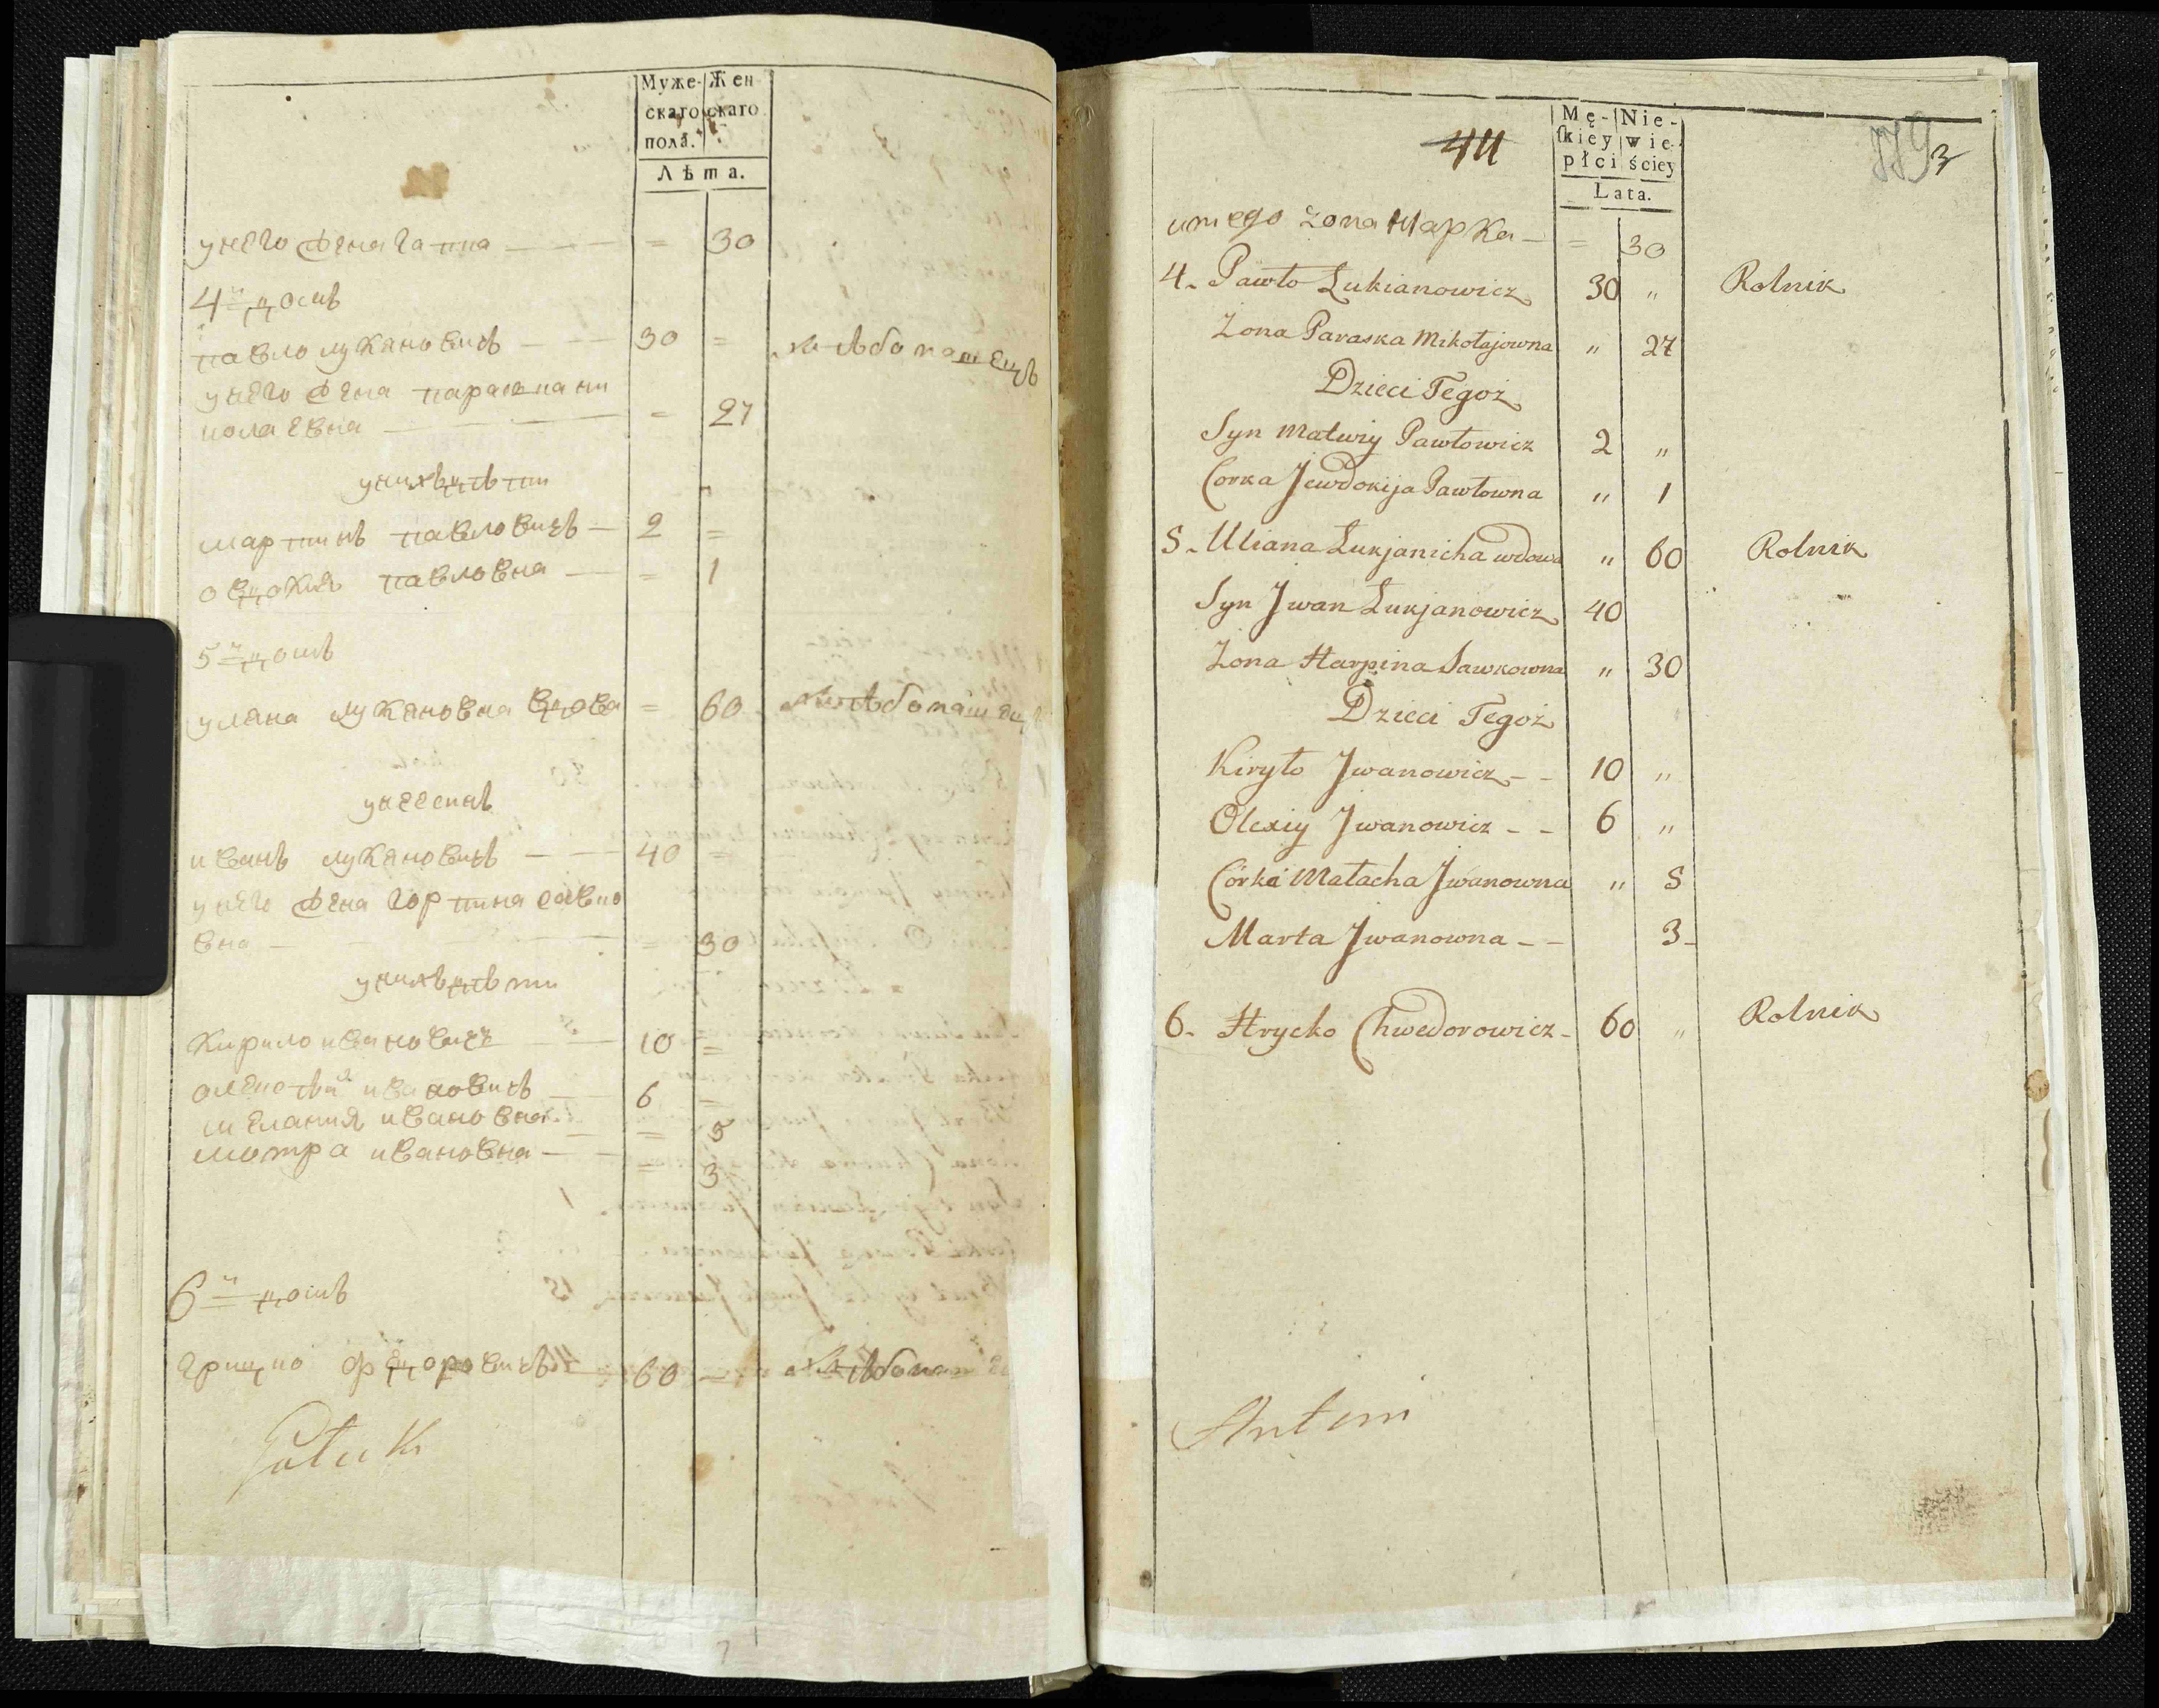 Муже- Жен-
скаго скаго
пола.
Лѣта.
унего жена гапка — = 30
4й домъ
павло лукяновичъ — 30 = хлѣбопашецъ
унего жена параска ни
колаевна — = 27
унихъ дѣти
мартинъ павловичъ — 2 =
овдокия павловна — = 1
5й домъ
уляна лукяновна вдова = 60 хлѣбопашецъ
унее синъ
иванъ лукяновичъ — 40 =
унего жена горпина савко
вна — = 30
унихъ дѣти
кирило ивановичъ — 10 =
олексѣй ивановичъ — 6 =
мелания ивановна = 5
мотра ивановна — = 3
6й домъ
грицко фѣдоровичъ — 60 = хлѣбопашец
44
Mę- Nie-
ſkiey wie-
płci ściey
Lata.
3
żona — = 30
4. Pawło Łukianowicz 30 " Rolnik
Żona Paraska Mikołajowna " 27
Dzieci Tegoż
Syn Matwiy Pawłowicz 2 "
Corka Jewdokija Pawłowna " 1
5. Uliana Łukjanicha wdowa " 60 Rolnik
Syn Jwan Łukjanowicz 40
Żona Harpina Sawkowna " 30
Dzieci Tegoż
Kiryło Jwanowicz - - 10 "
Olexiy Jwanowicz - - 6 "
Córki Małacha Jwanowna " 5
Marta Jwanowna - - 3
6. Hrycko Chwedorowicz - 60 " Rolnik
Antoni